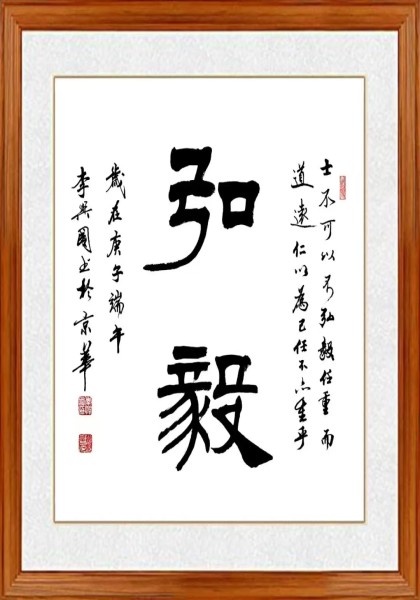 士不可以不弘毅任重而
道遠仁以為己任不亦重乎
弘毅
歲在庚午端午
李興國书於京華